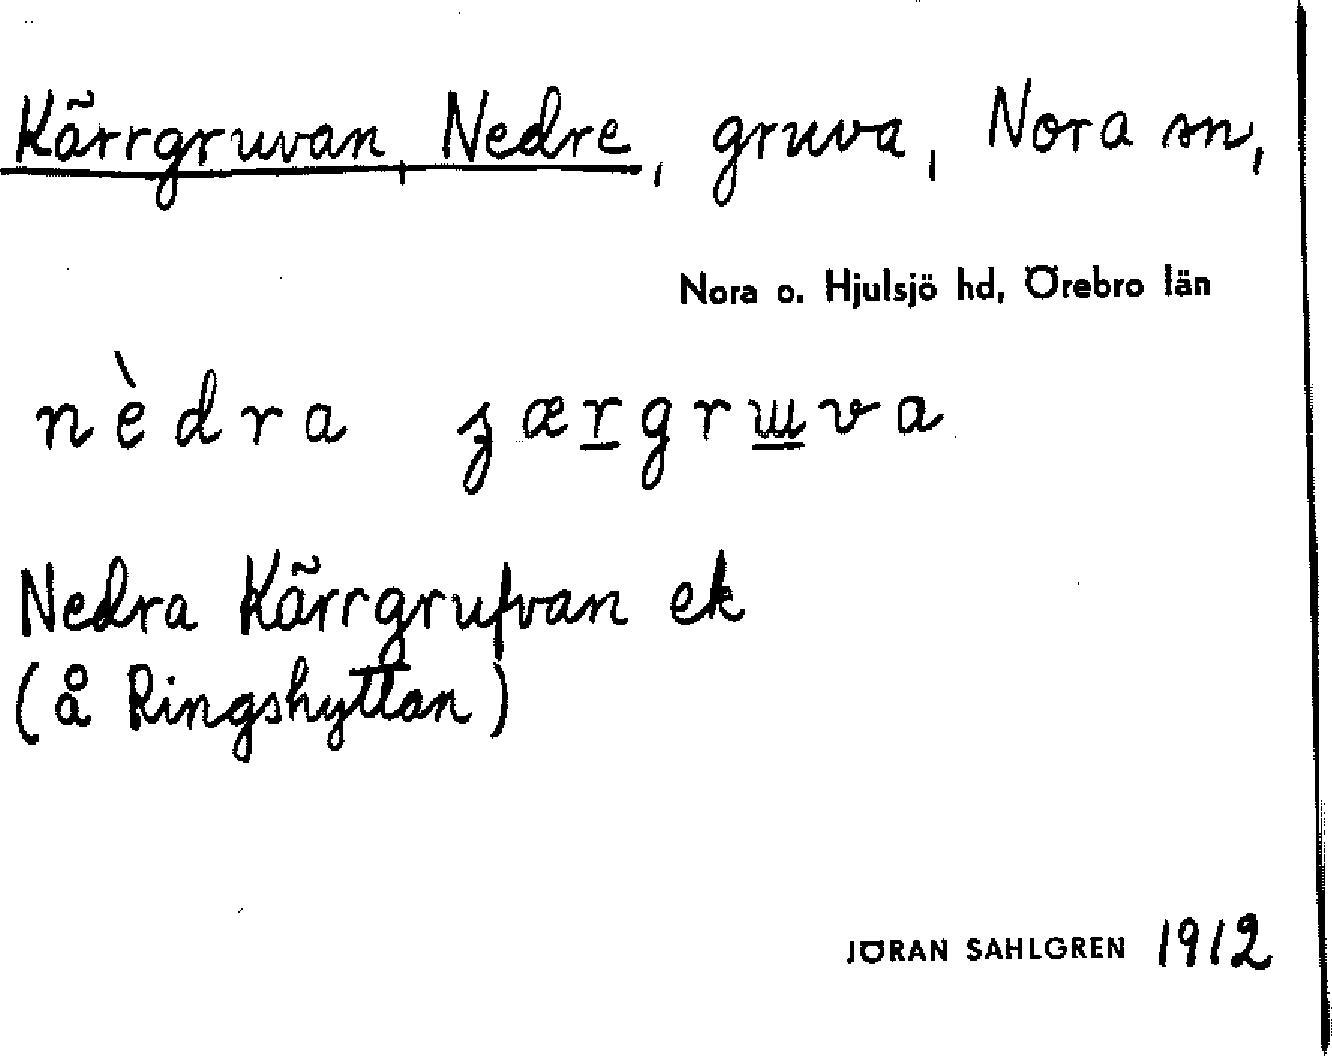 Kärrgruvan, Nedre, gruva, Nora sn,
Nora o. Hjulsjö hd, Örebro län
nèdra
Nedra Kärrgrufvan ek
(å Ringshyttan)
JÖRAN SAHLGREN 1912